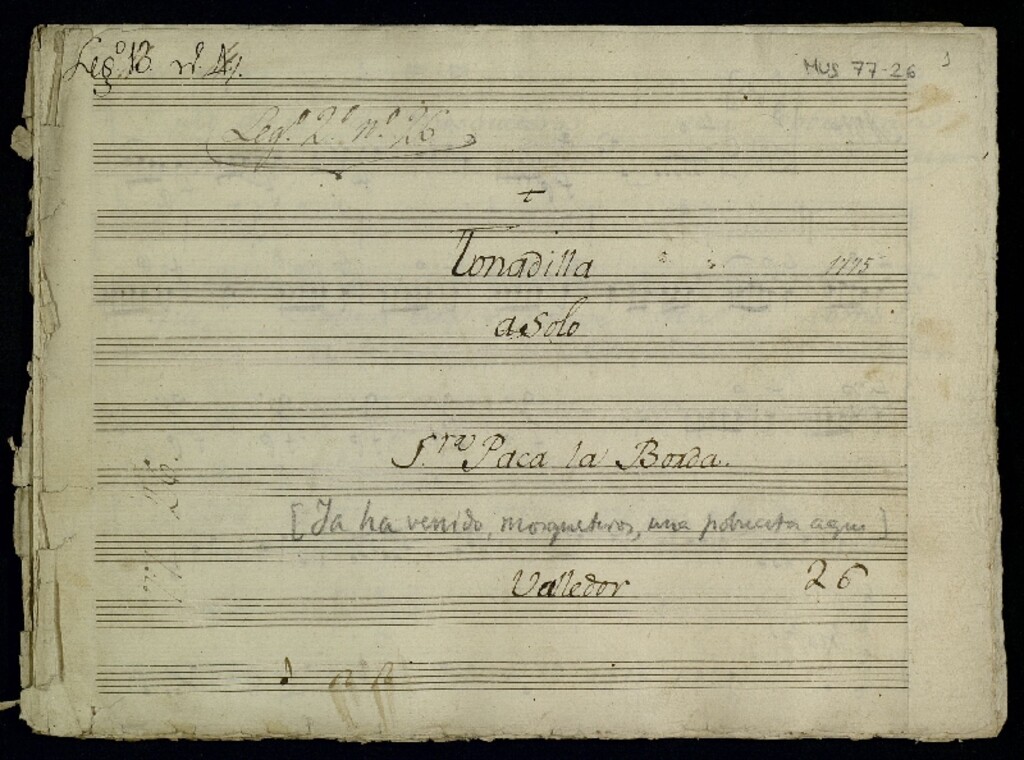 Leg.º 13. nº.
MUS 77-26
Leg.º 2.º n.º 26
Tonadilla
1775
a Solo
S.ra Paca la Borda.
[Ya ha venido, mosqueteros, una pobreceta aqui]
26
Valledor